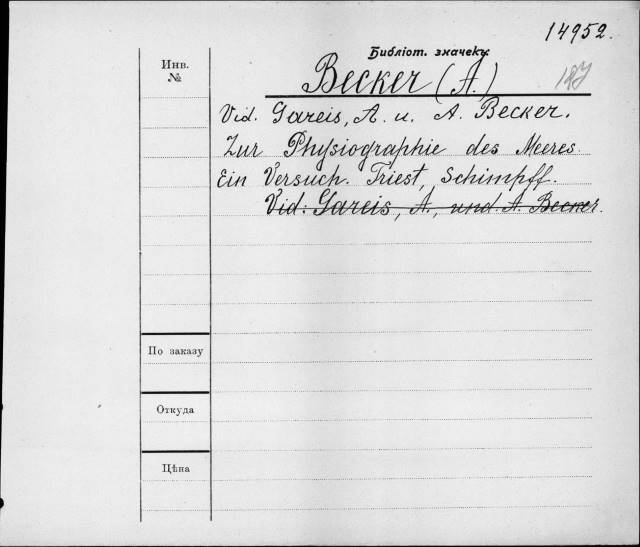 14952.
Библіот. значекъ
Инв.
№
Becker (A.)
Vid. Gareis, A. u. A. Becker.
Zur Physiographie des Meeres.
Ein Versuch. Triest, Schimpff.
Vid: Gareis, A., und A. Becker.
По заказу
Откуда
Цѣна